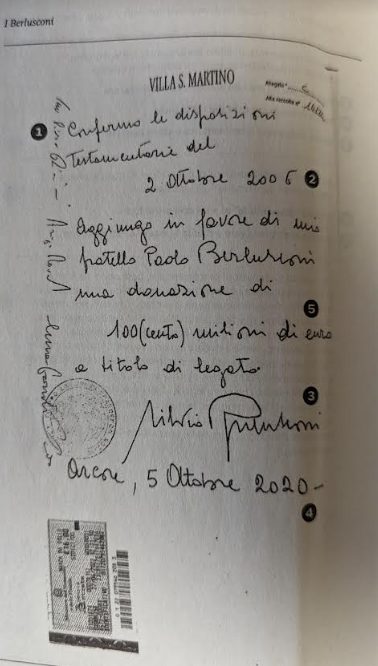 I Berlusconi
VILLA S. MARTINO
Allegato "
alla raccolta n°
1 Confermo le disposizioni
testamentarie del
2 Ottobre 2006 2
Aggiungo in favore di mio
fratello Paolo Berlusconi
una donazione di
5
100 (cento) milioni di euro
a titolo di legato.
3
Silvio Berlusconi
Arcore, 5 Ottobre 2020-
4